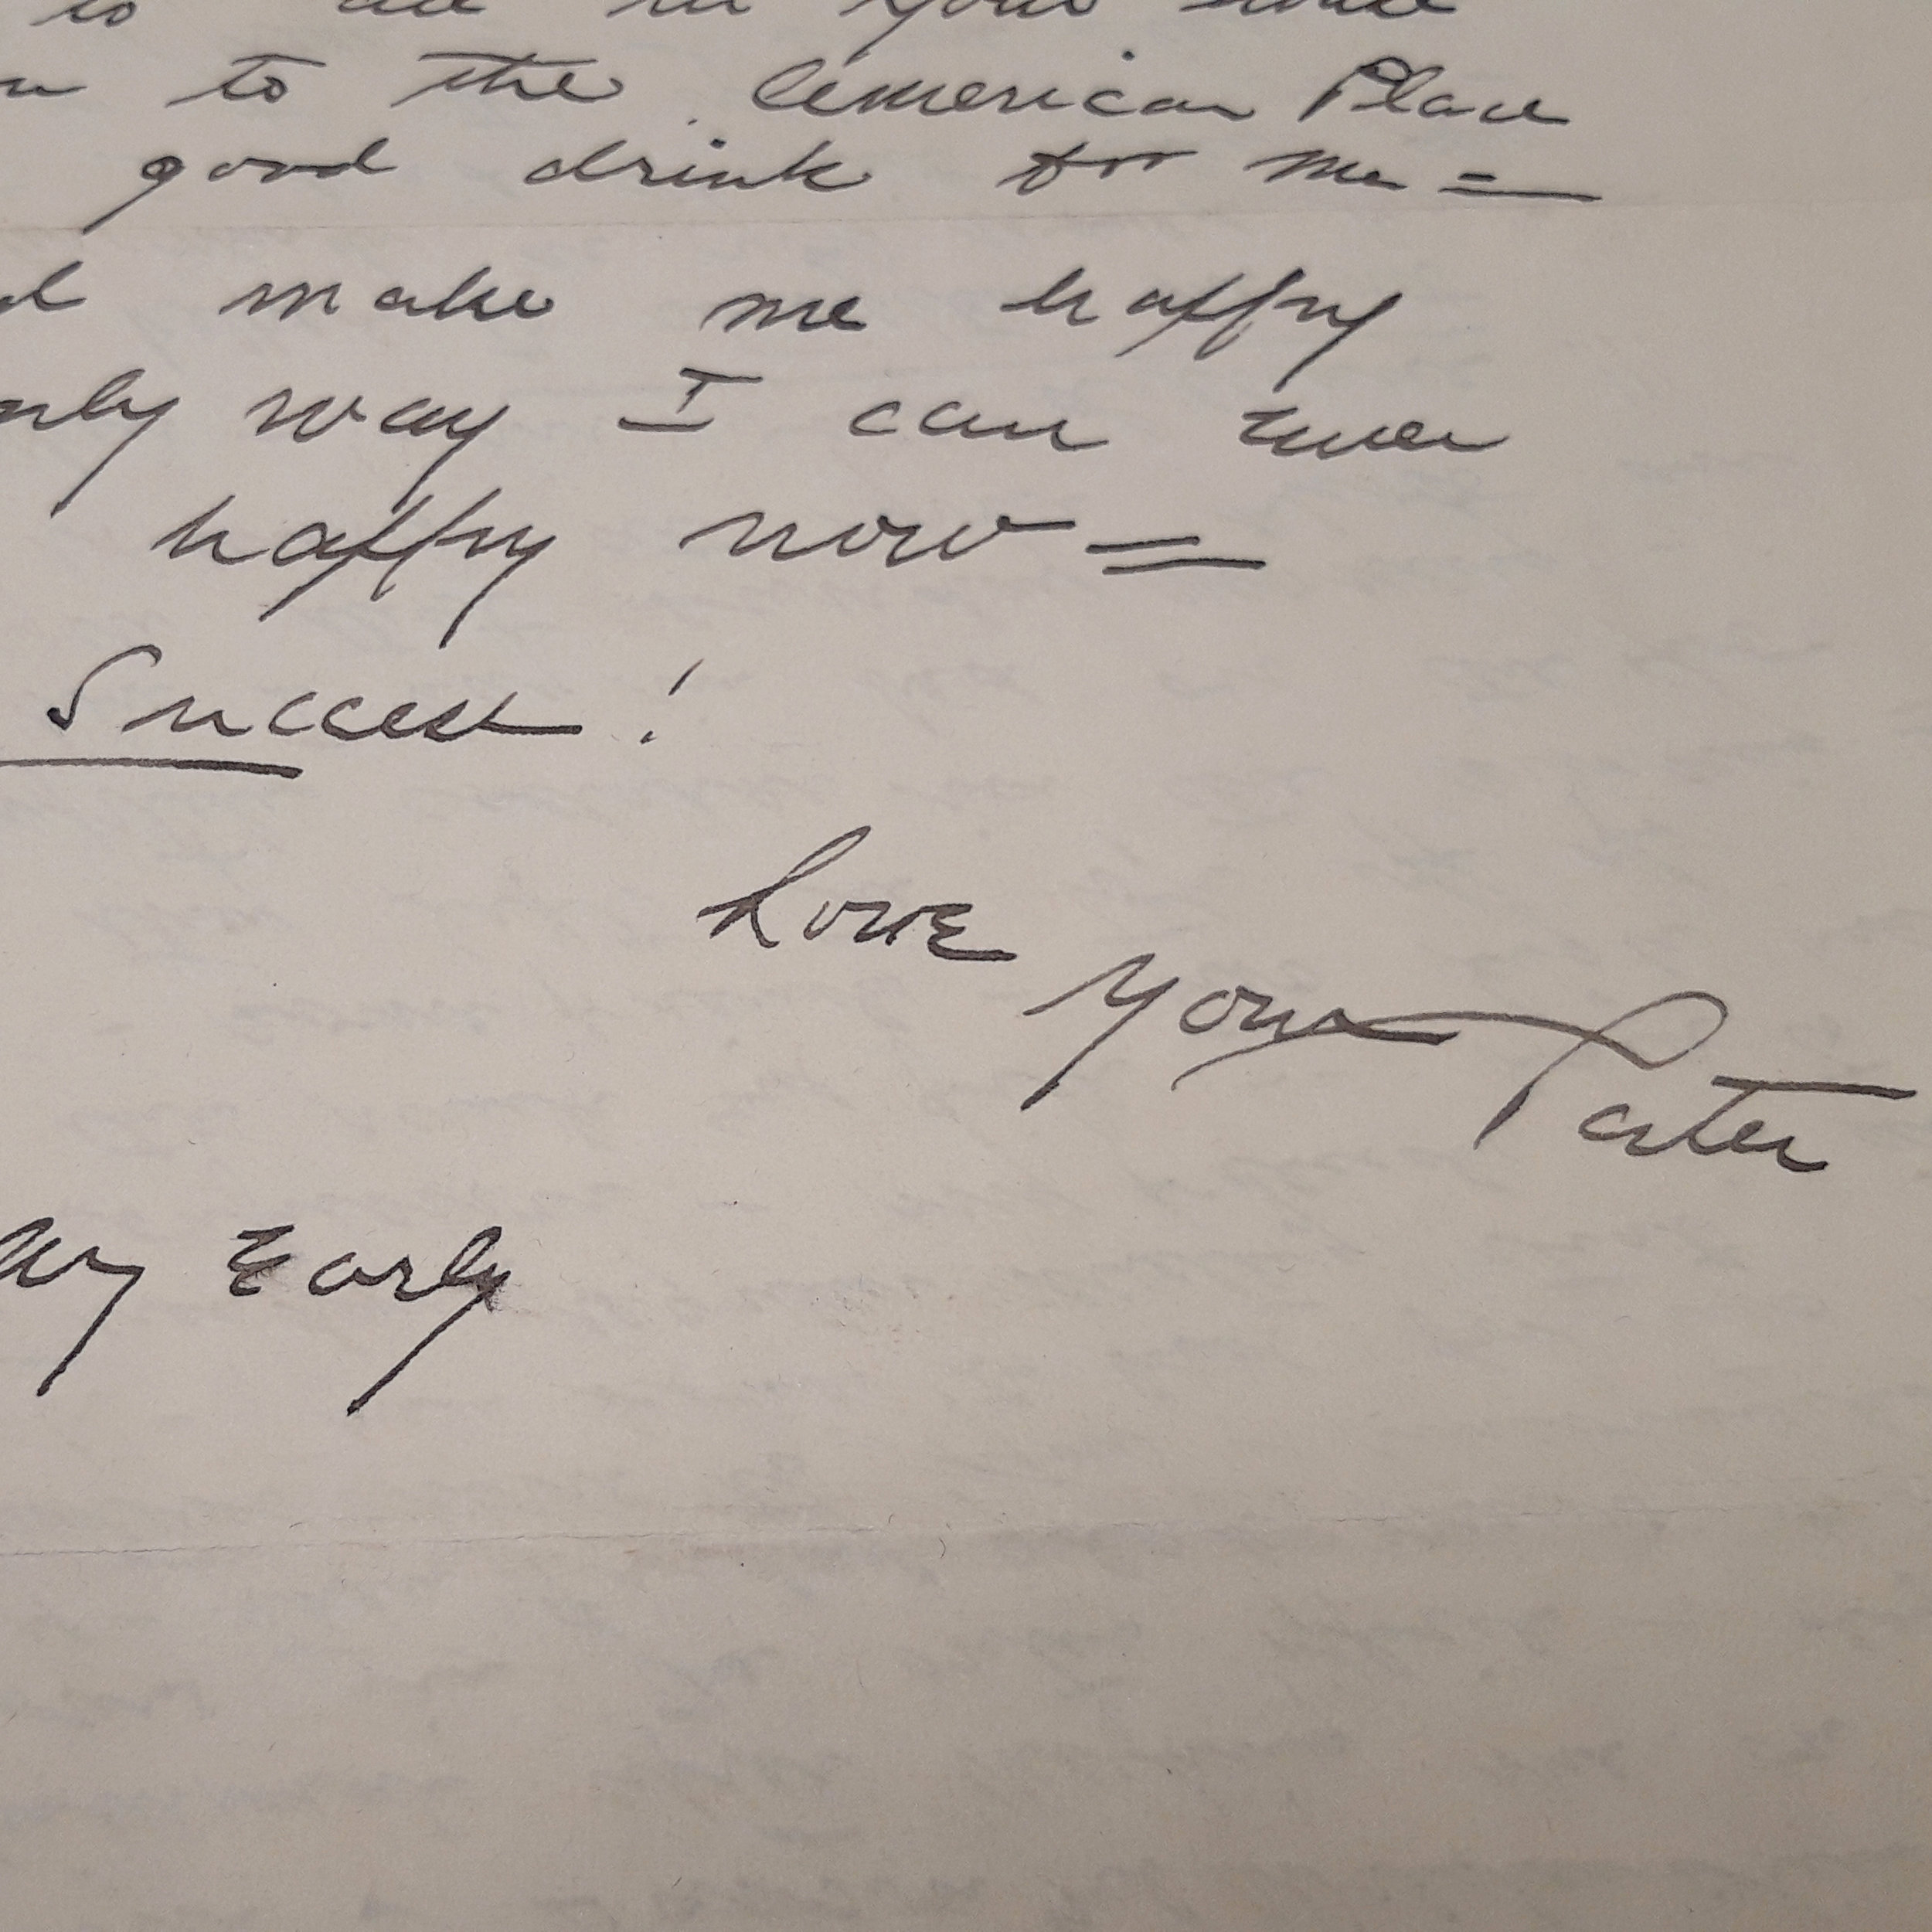 to all in your
to the American Place
good drink for me =
make me happy
way I can ever
happy now =
Success!
Love
Your Pater
Early